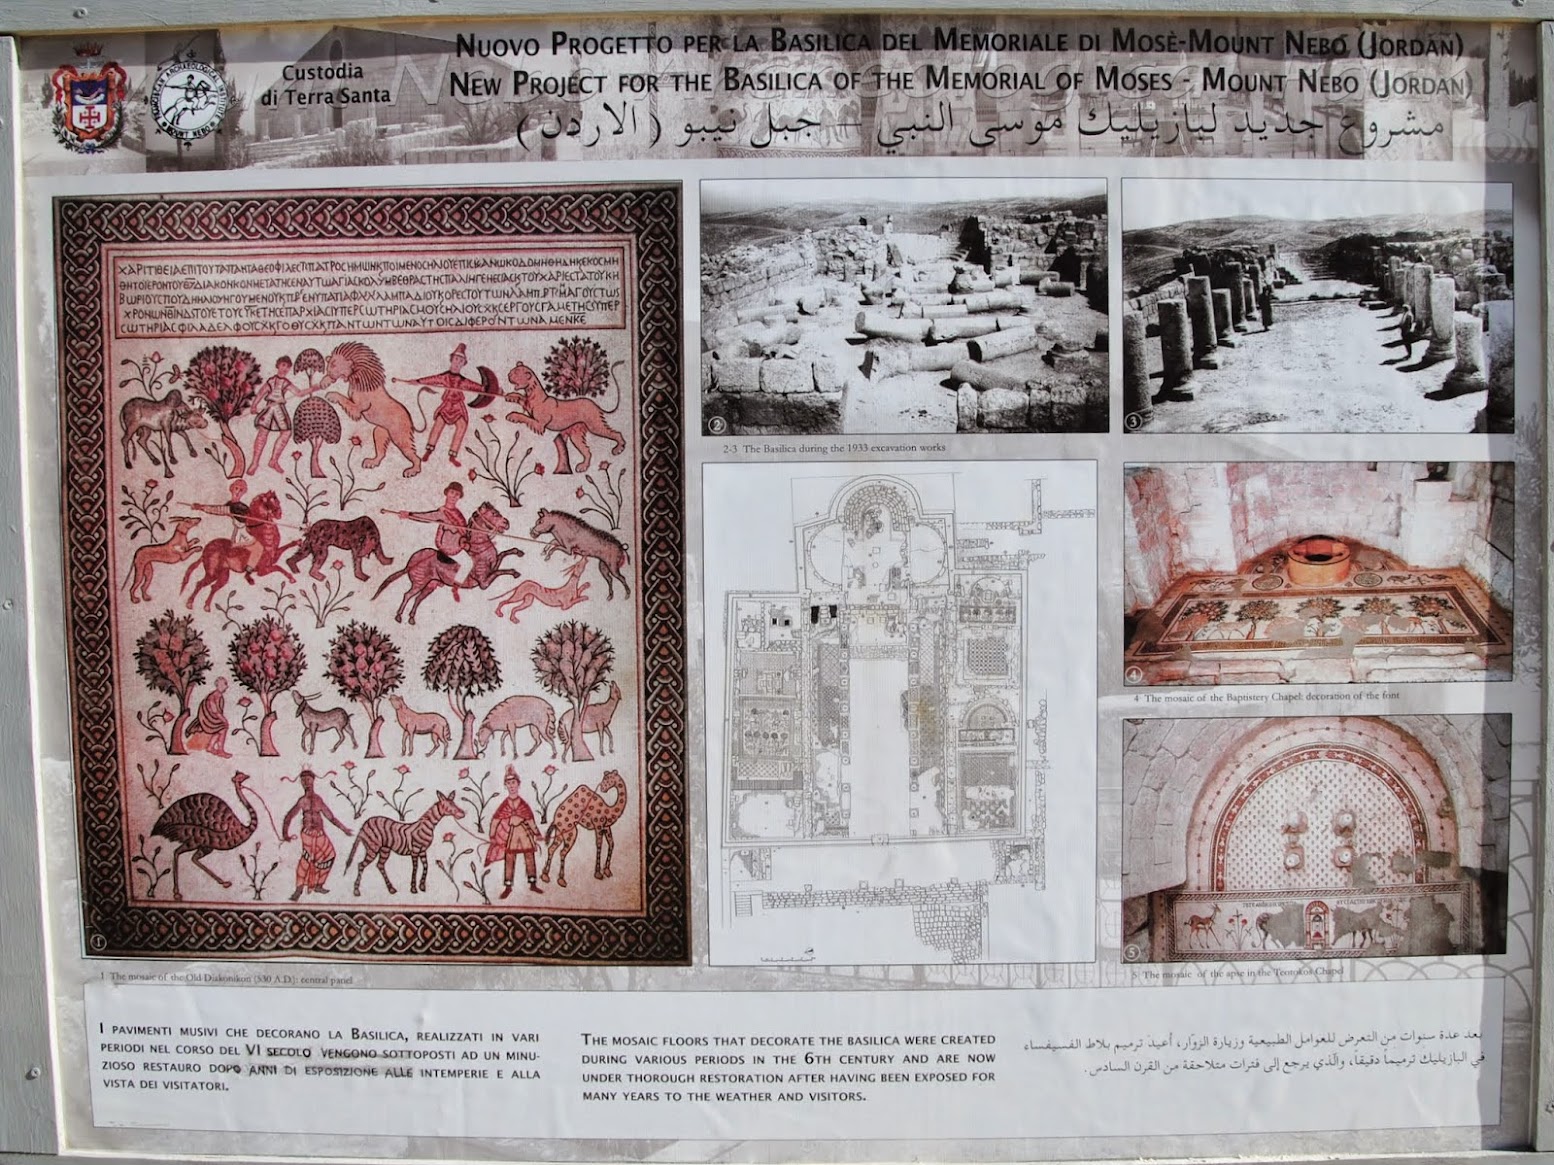 Custodia
di Terra Santa
Nuovo Progetto per la Basilica del Memoriale di Mosè-Mount Nebo (Jordan)
New Project for the Basilica of the Memorial of Moses - Mount Nebo (Jordan)
مشروع جديد لبازيليك موسى النبي - جبل نيبو (الاردن)
1
1 The mosaic of the Old Diakonikon (530 A.D): central panel
2
3
2-3 The Basilica during the 1933 excavation works
4
4 The mosaic of the Baptistery Chapel: decoration of the font
5
5 The mosaic of the apse in the Teotokos Chapel
I pavimenti musivi che decorano la Basilica, realizzati in vari
periodi nel corso del VI secolo vengono sottoposti ad un minu-
zioso restauro dopo anni di esposizione alle intemperie e alla
vista dei visitatori.
The mosaic floors that decorate the basilica were created
during various periods in the 6th century and are now
under thorough restoration after having been exposed for
many years to the weather and visitors.
بعد عدة سنوات من التعرض للعوامل الطبيعية وزيارة الزوّار، أعيد ترميم بلاط الفسيفساء
في البازيليك ترميماً دقيقاً، والّذي يرجع إلى فترات متلاحقة من القرن السادس.